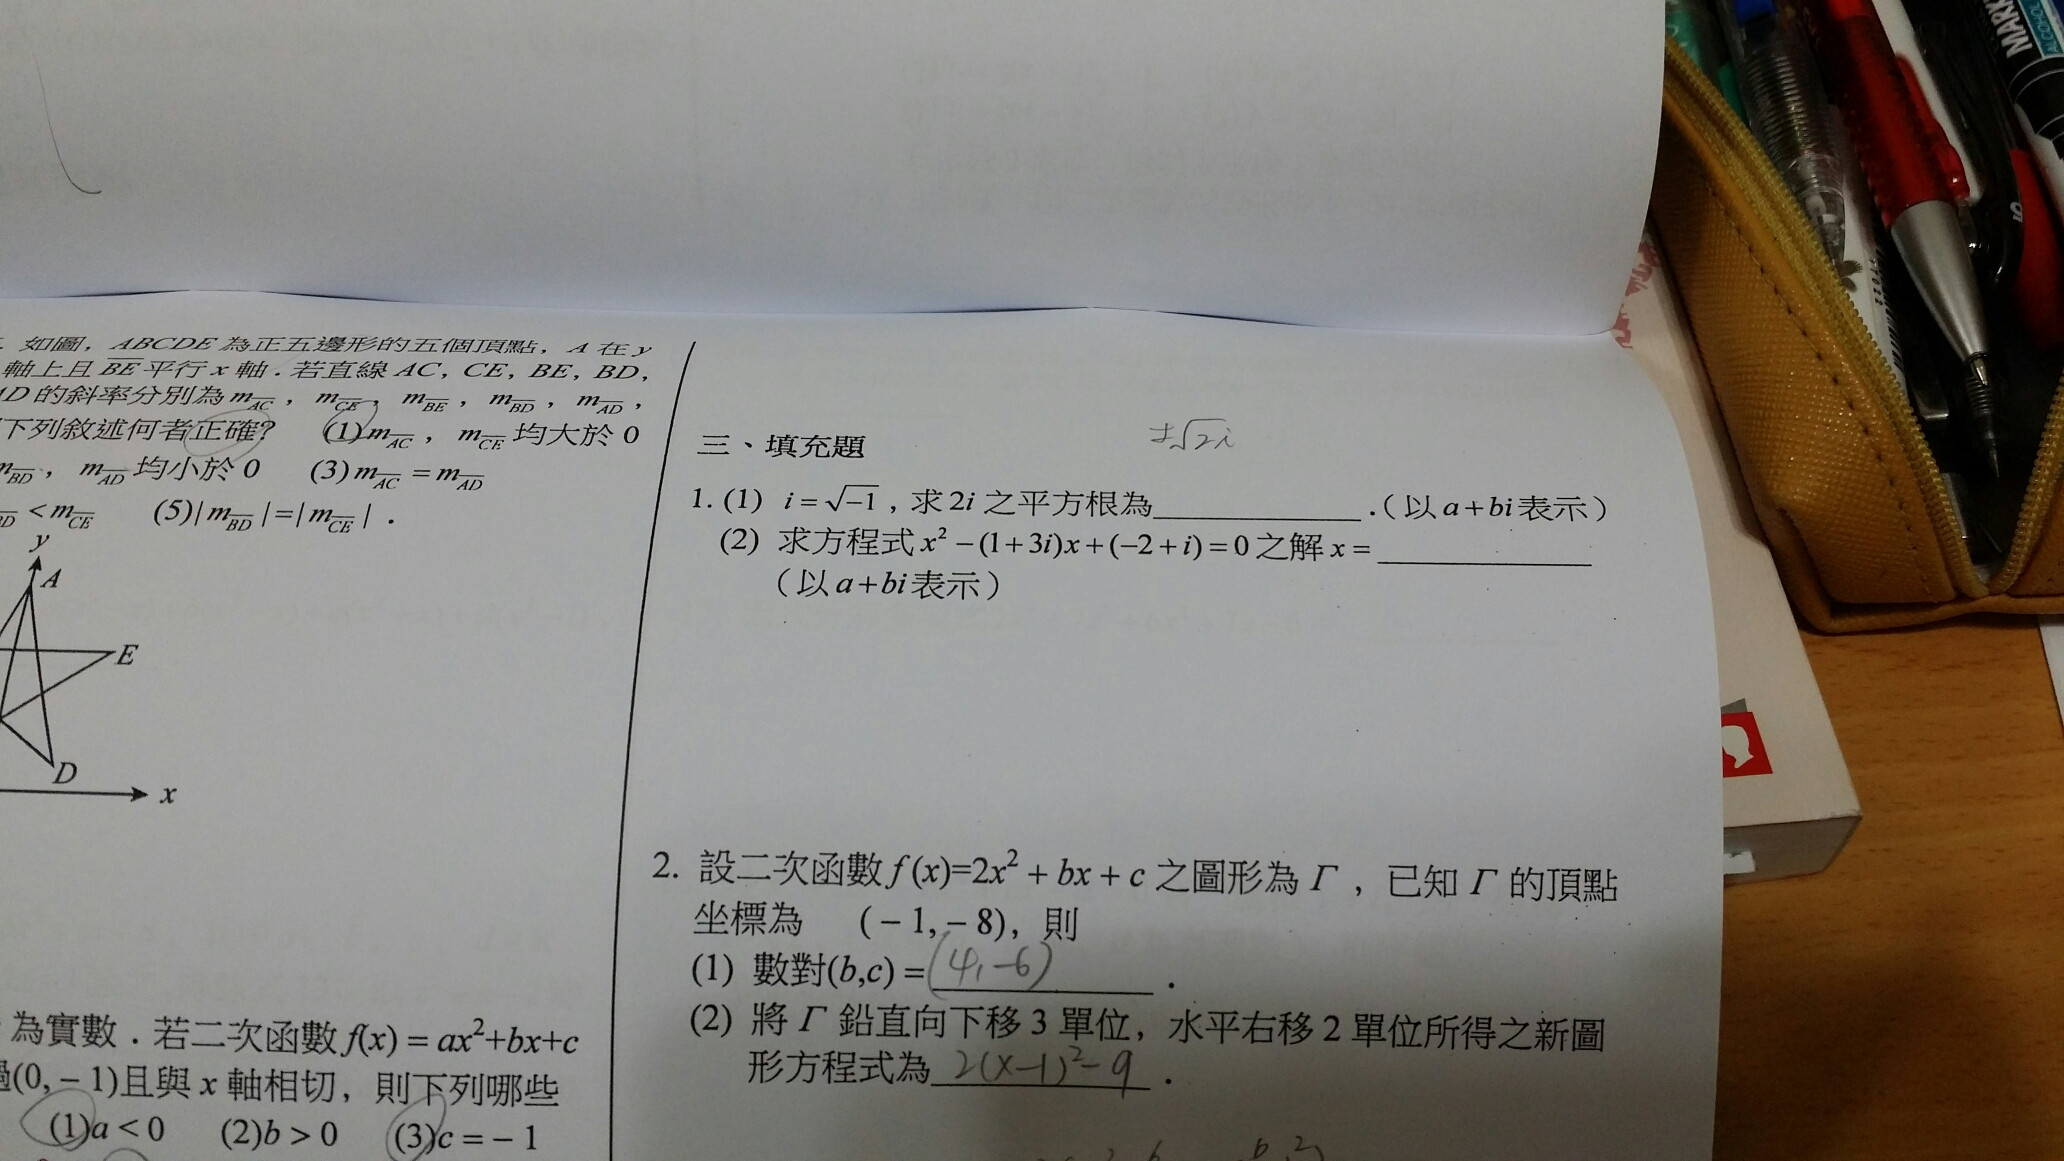 如圖，ABCDE 為正五邊形的五個頂點，A 在 y
軸上且 BE 平行 x 軸．若直線 AC，CE，BE，BD，
AD 的斜率分別為 m_AC，m_CE，m_BE，m_BD，m_AD，
下列敘述何者正確？ (1) m_AC，m_CE 均大於 0
m_BD，m_AD 均小於 0 (3) m_AC = m_AD
BD < m_CE (5)| m_BD |=| m_CE |．
y
A
E
D
x
為實數．若二次函數 f(x) = ax²+bx+c
過(0, – 1)且與 x 軸相切，則下列哪些
(1)a < 0 (2)b > 0 (3)c = – 1
三、填充題
±√2i
1. (1) i = √−1，求 2i 之平方根為____．(以 a+bi 表示)
(2) 求方程式 x² − (1+3i)x + (−2+i) = 0 之解 x = ____
(以 a+bi 表示)
2. 設二次函數 f (x)=2x² + bx + c 之圖形為 Γ，已知 Γ 的頂點
坐標為 ( – 1, – 8)，則
(1) 數對(b,c) = (4,-6)．
(2) 將 Γ 鉛直向下移 3 單位，水平右移 2 單位所得之新圖
形方程式為 2(x-1)²-9．
MARK
ALCOHOL